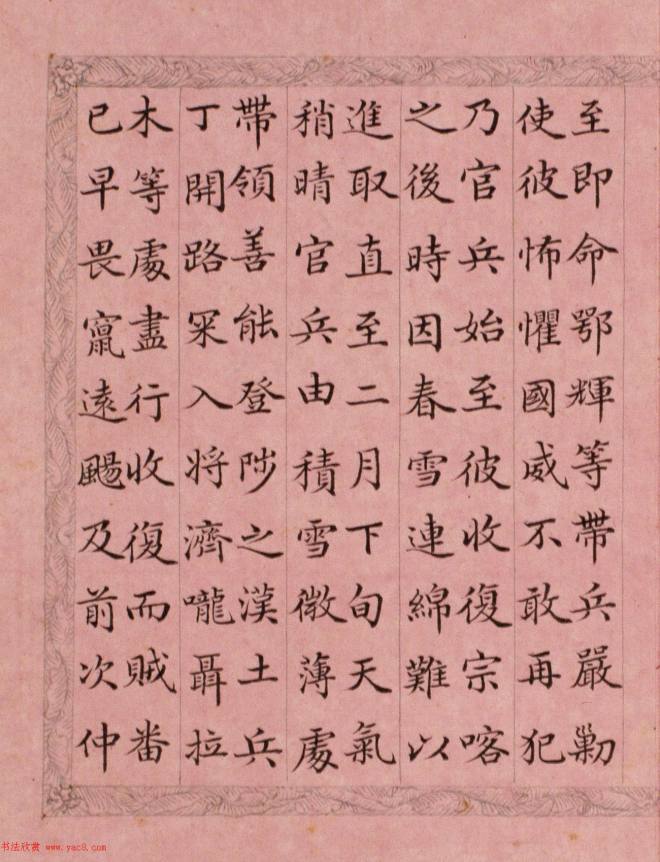 至即命鄂輝等帶兵嚴剿
使彼怖懼國威不敢再犯
乃官兵始至彼收復宗喀
之後時因春雪連綿難以
進取直至二月下旬天氣
稍晴官兵由積雪微薄處
帶領善能登陟之漢土兵
丁開路罙入將濟嚨聶拉
木等處盡行收復而賊番
已早畏竄遠颺及前次仲
书法欣赏 www.yac8.com